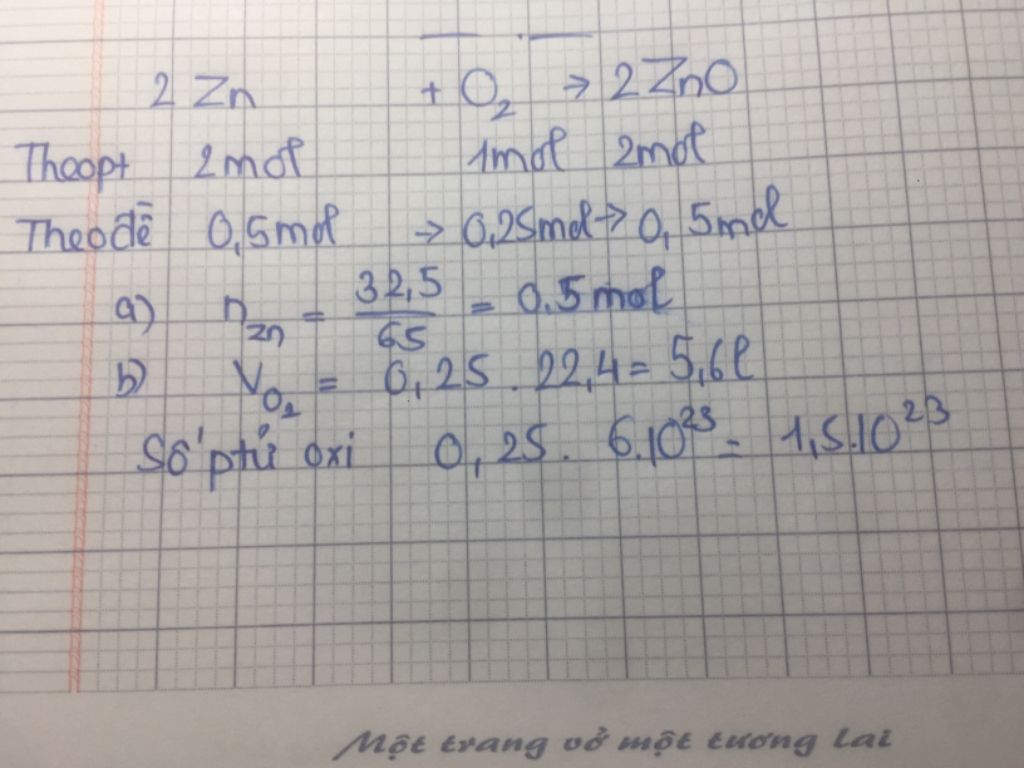 2 Zn + O₂ → 2 ZnO
Theopt 2mol 1mol 2mol
Theo đề 0,5mol → 0,25mol → 0,5mol
a) nZn = 32,5/65 = 0.5mol
b) VO₂ = 0,25 . 22,4 = 5,6l
Số ptử oxi 0,25. 6.10²³ = 1,5.10²³
Một trang vở một tương lai